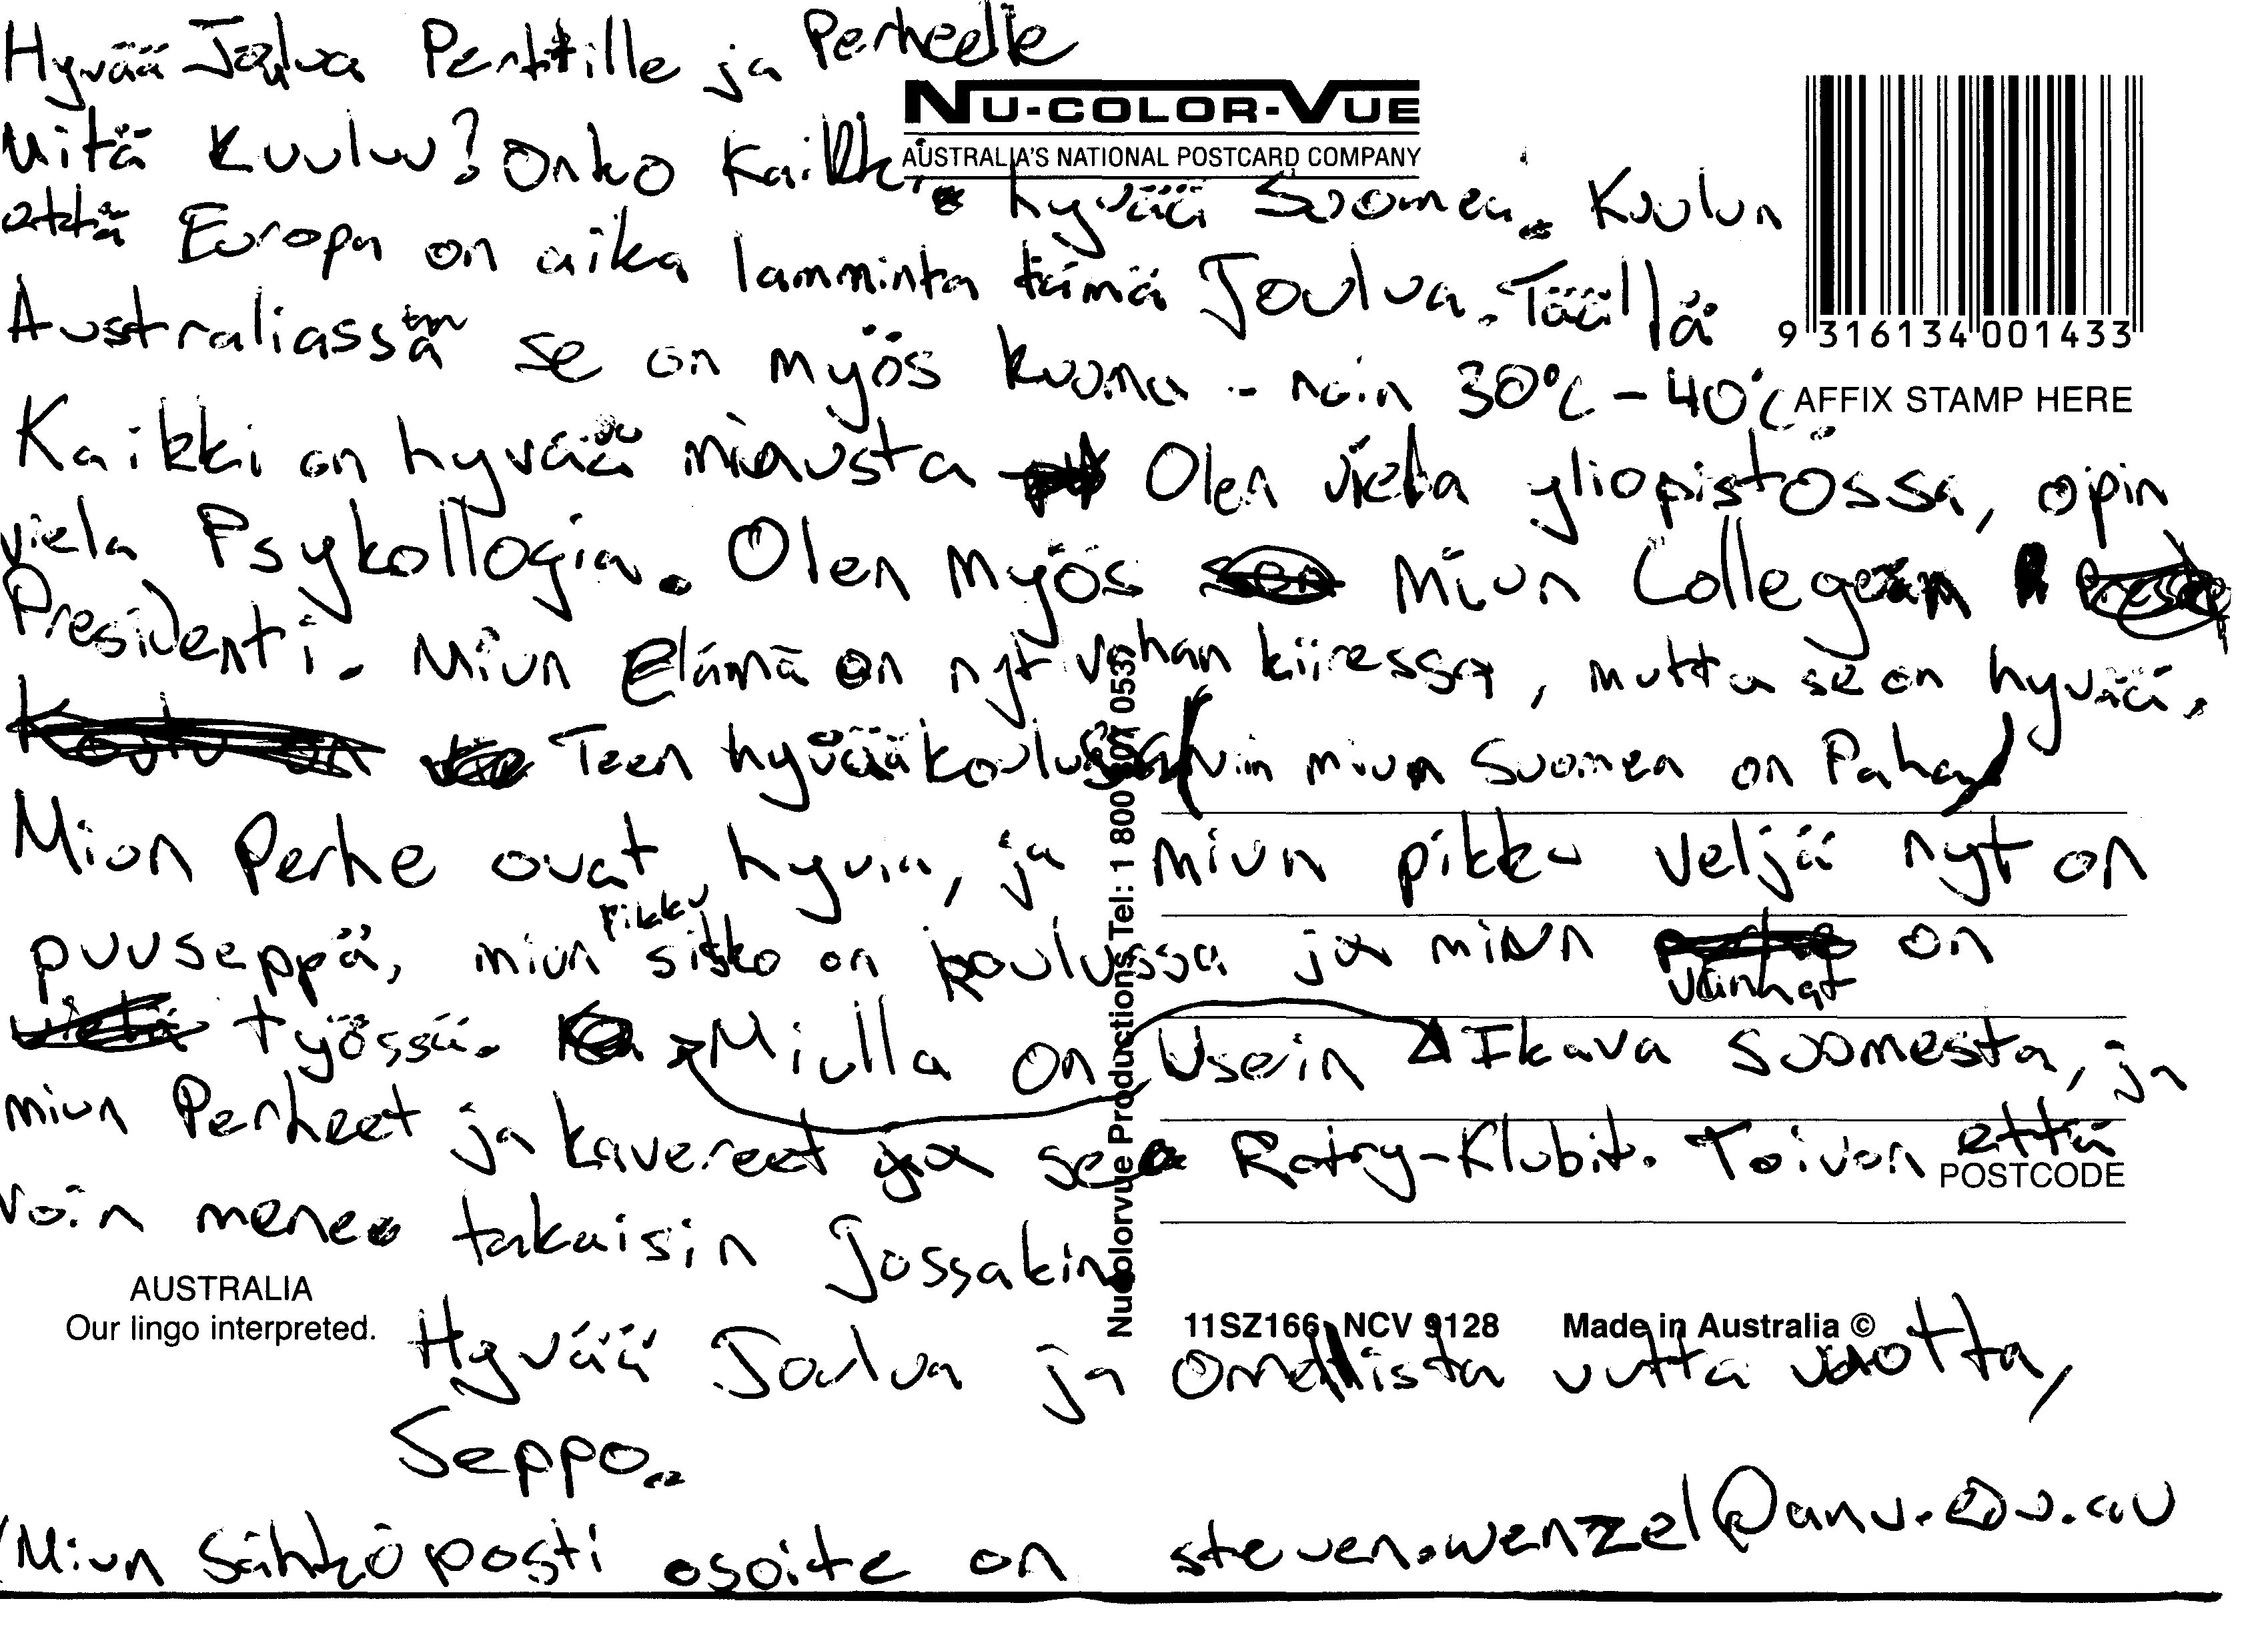 Hyvää Joulua Perttille ja Perheelle
NU-COLOR-VUE
AUSTRALIA'S NATIONAL POSTCARD COMPANY
Mitä Kuuluu? Onko Kaikki hyvää Suomen. Kuulun
että Europa on aika lamminta tämä Joulua. Täällä
9 316134 001433
Australiassa se on myös kuuma - noin 30°C - 40°C
AFFIX STAMP HERE
Kaikki on hyvää minusta Olen viela yliopistossa, opin
viela Psykollogia. Olen myös Miun Collegen
Presidenti. Miun Elämä on nyt vahan kiiressa, mutta se on hyvää.
Teen hyvää koulussa (Vin miun Suomen on Paha)
Miun Perhe ovat hyvin, ja miun pikku veljä nyt on
puuseppä, miun pikku sisko on koulussa ja miun vanhat on
työssä. Miulla on Usein Ikava Suomesta, ja
miun Perheet ja kavereet ja se Rotry-Klubit. Toivon että
POSTCODE
voin mene takaisin Jossakin
Nucolorvue Productions Tel: 1 800 0533
AUSTRALIA
Our lingo interpreted.
11SZ166 NCV 9128 Made in Australia ©
Hyvää Joulua ja Onellista uutta vuotta,
Seppo.
(Miun Sähköposti osoite on steven.wenzel@anu.edu.au